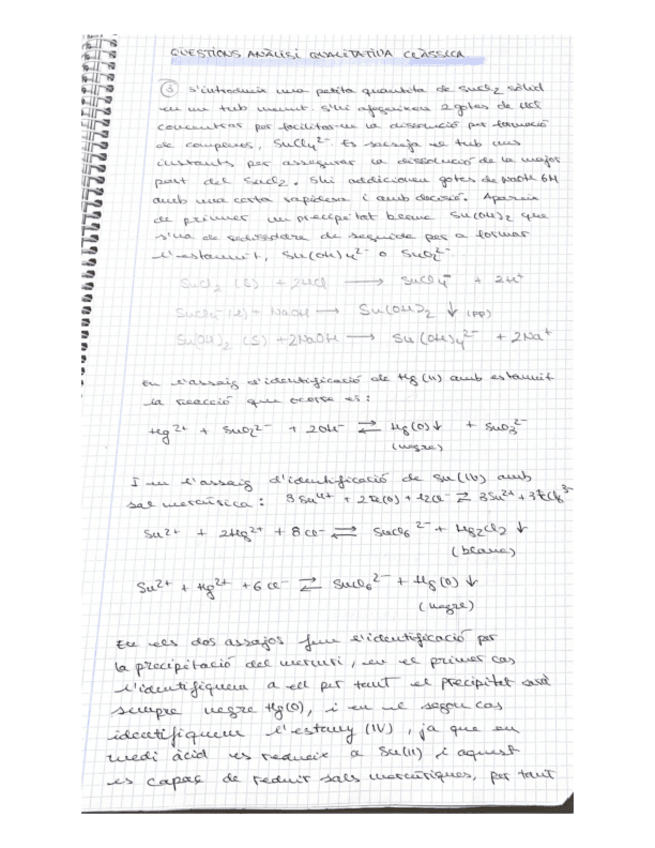 QÜESTIONS ANÀLISI QUALITATIVA CLÀSSICA
③ S'introdueix una petita quantitat de SnCl2 sòlid
en un tub menut. S'hi afegeixen 2 gotes de HCl
concentrat per facilitar-ne la dissolució per formació
de complexos, SnCl4²⁻. Es sacseja el tub uns
instants per assegurar la dissolució de la major
part del SnCl2. S'hi addicionen gotes de NaOH 6M
amb una certa rapidesa i amb decisió. Apareix
de primer un precipitat blanc Sn(OH)2 que
s'ha de redissoldre de seguida per a formar
l'estannit, Sn(OH)4²⁻ o SnO2²⁻
SnCl2 (s) + 2HCl ⟶ SnCl4⁻ + 2H⁺
+ NaOH ⟶ Sn(OH)2 ↓ (pp)
Sn(OH)2 (s) + 2NaOH ⟶ Sn(OH)4²⁻ + 2Na⁺
En l'assaig d'identificació de Hg(II) amb estannit
la reacció que ocorre és:
Hg²⁺ + SnO2²⁻ + 2OH⁻ ⇄ Hg(0)↓ + SnO3²⁻
(negre)
I en l'assaig d'identificació de Sn(IV) amb
sal mercúrica: 3Sn⁴⁺ + 2Fe(0) + 12Cl⁻ ⇄ 3Sn²⁺ +
Sn²⁺ + 2Hg²⁺ + 8Cl⁻ ⇄ SnCl6²⁻ + Hg2Cl2 ↓
(blanc)
Sn²⁺ + Hg²⁺ + 6Cl⁻ ⇄ SnCl6²⁻ + Hg(0) ↓
(negre)
En els dos assajos fem l'identificació per
la precipitació del mercuri, en el primer cas
l'identifiquem a ell per tant el precipitat serà
sempre negre Hg(0), i en el segon cas
identifiquem l'estany (IV), ja que en
medi àcid es redueix a Sn(II) i aquest
és capaç de reduir sals mercúriques, per tant